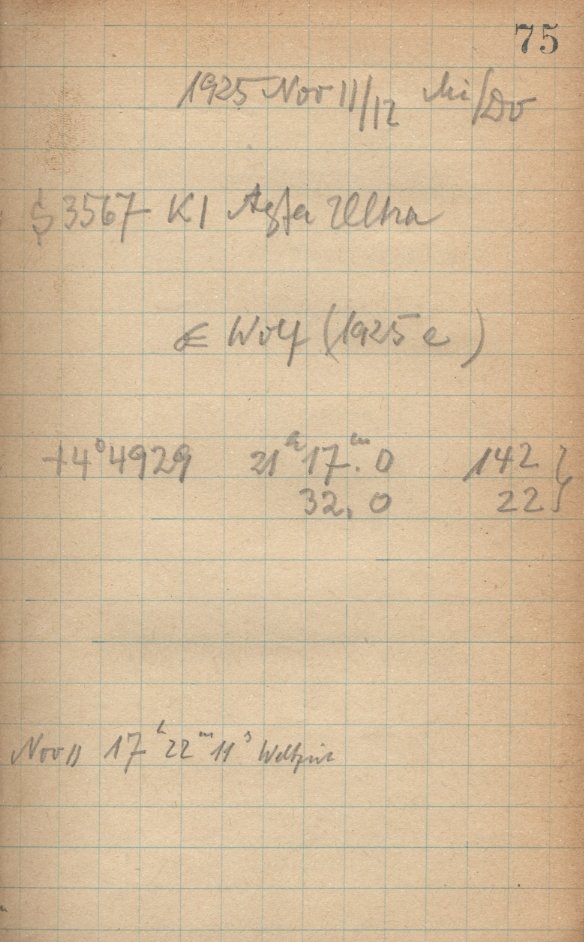 75
1925 Nov 11/12 Mi/Do
S 3567 K1 Agfa Ultra
Wolf (1925 e)
+4°4929 21ʰ17ᵐ.0 142 }
32.0 22 }
Nov 11 17ʰ22ᵐ11ˢ Weltzeit